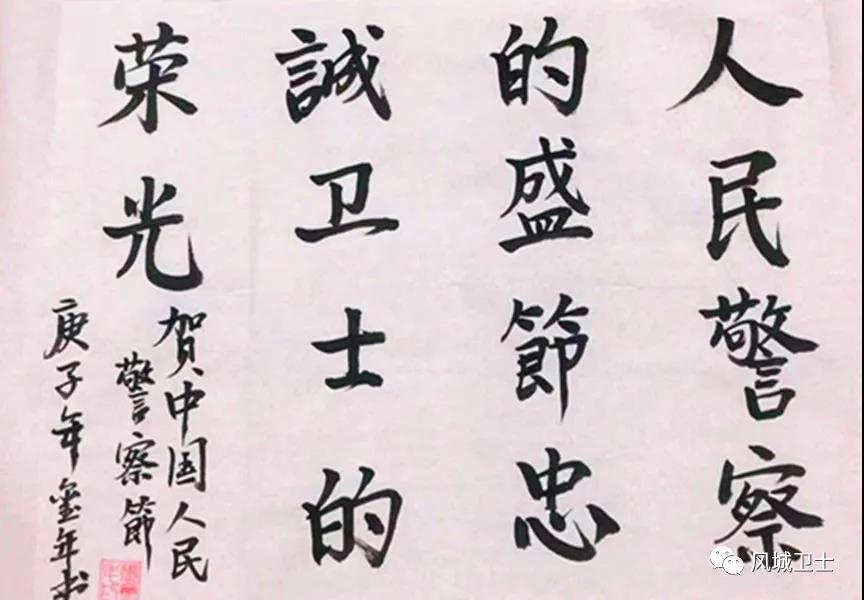 人民警察
的盛節忠
誠卫士的
荣光
贺中国人民
警察節
庚子年奎年书
风城卫士